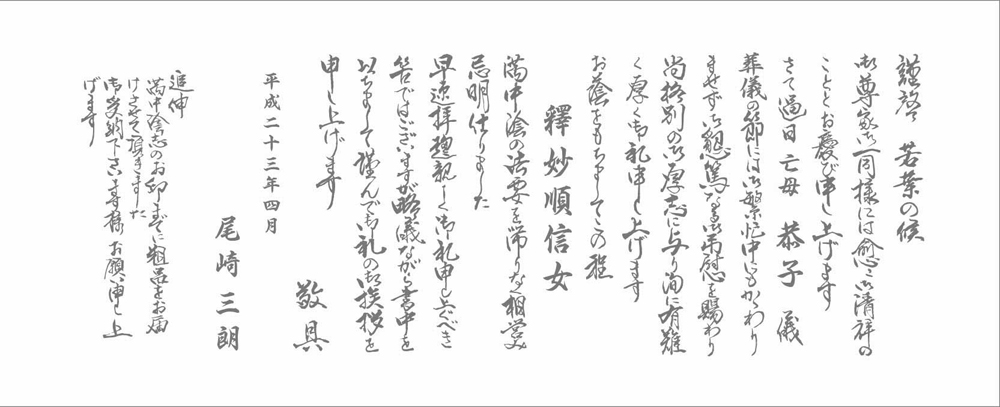 謹啓 若葉の候
御尊家御一同様には愈々御清祥の
こととお慶び申し上げます
さて過日 亡母 恭子 儀
葬儀の節には御繁忙中にもかかわり
ませず御懇篤なる御弔慰を賜わり
尚格別の御厚志に与り洵に有難
く厚く御礼申し上げます
お蔭をもちましてこの程
釋妙順信女
満中陰の法要を滞りなく相営み
忌明仕りました
早速拝趨親しく御礼申し上ぐべき
筈ではございますが略儀ながら書中を
以ちまして謹んで御礼の御挨拶を
申し上げます
敬具
平成二十三年四月
尾崎三朗
追伸
満中陰志のお印までに粗品をお届
けさせて頂きました
御笑納下さいます様お願い申し上
げます